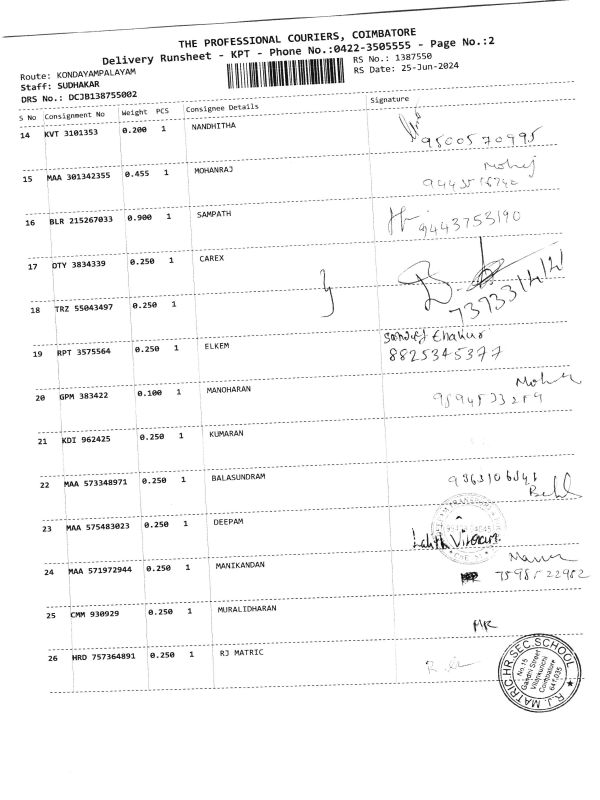 THE PROFESSIONAL COURIERS, COIMBATORE
Delivery Runsheet - KPT - Phone No.:0422-3505555 - Page No.:2
Route: KONDAYAMPALAYAM
RS No.: 1387550
Staff: SUDHAKAR
RS Date: 25-Jun-2024
DRS No.: DCJB138755002
S No Consignment No Weight PCS Consignee Details Signature
14 KVT 3101353 0.200 1 NANDHITHA
9500570995
15 MAA 301342355 0.455 1 MOHANRAJ
16 BLR 215267033 0.900 1 SAMPATH
9443753190
17 OTY 3834339 0.250 1 CAREX
18 TRZ 55043497 0.250 1
19 RPT 3575564 0.250 1 ELKEM
8825345377
20 GPM 383422 0.100 1 MANOHARAN
21 KDI 962425 0.250 1 KUMARAN
22 MAA 573348971 0.250 1 BALASUNDRAM
23 MAA 575483023 0.250 1 DEEPAM
24 MAA 571972944 0.250 1 MANIKANDAN
7598522982
25 CMM 930929 0.250 1 MURALIDHARAN
MR
26 HRD 757364891 0.250 1 RJ MATRIC
R.J. MATRIC HR.SEC.SCHOOL
No.15
Gandhi Street
Coimbatore
641.035